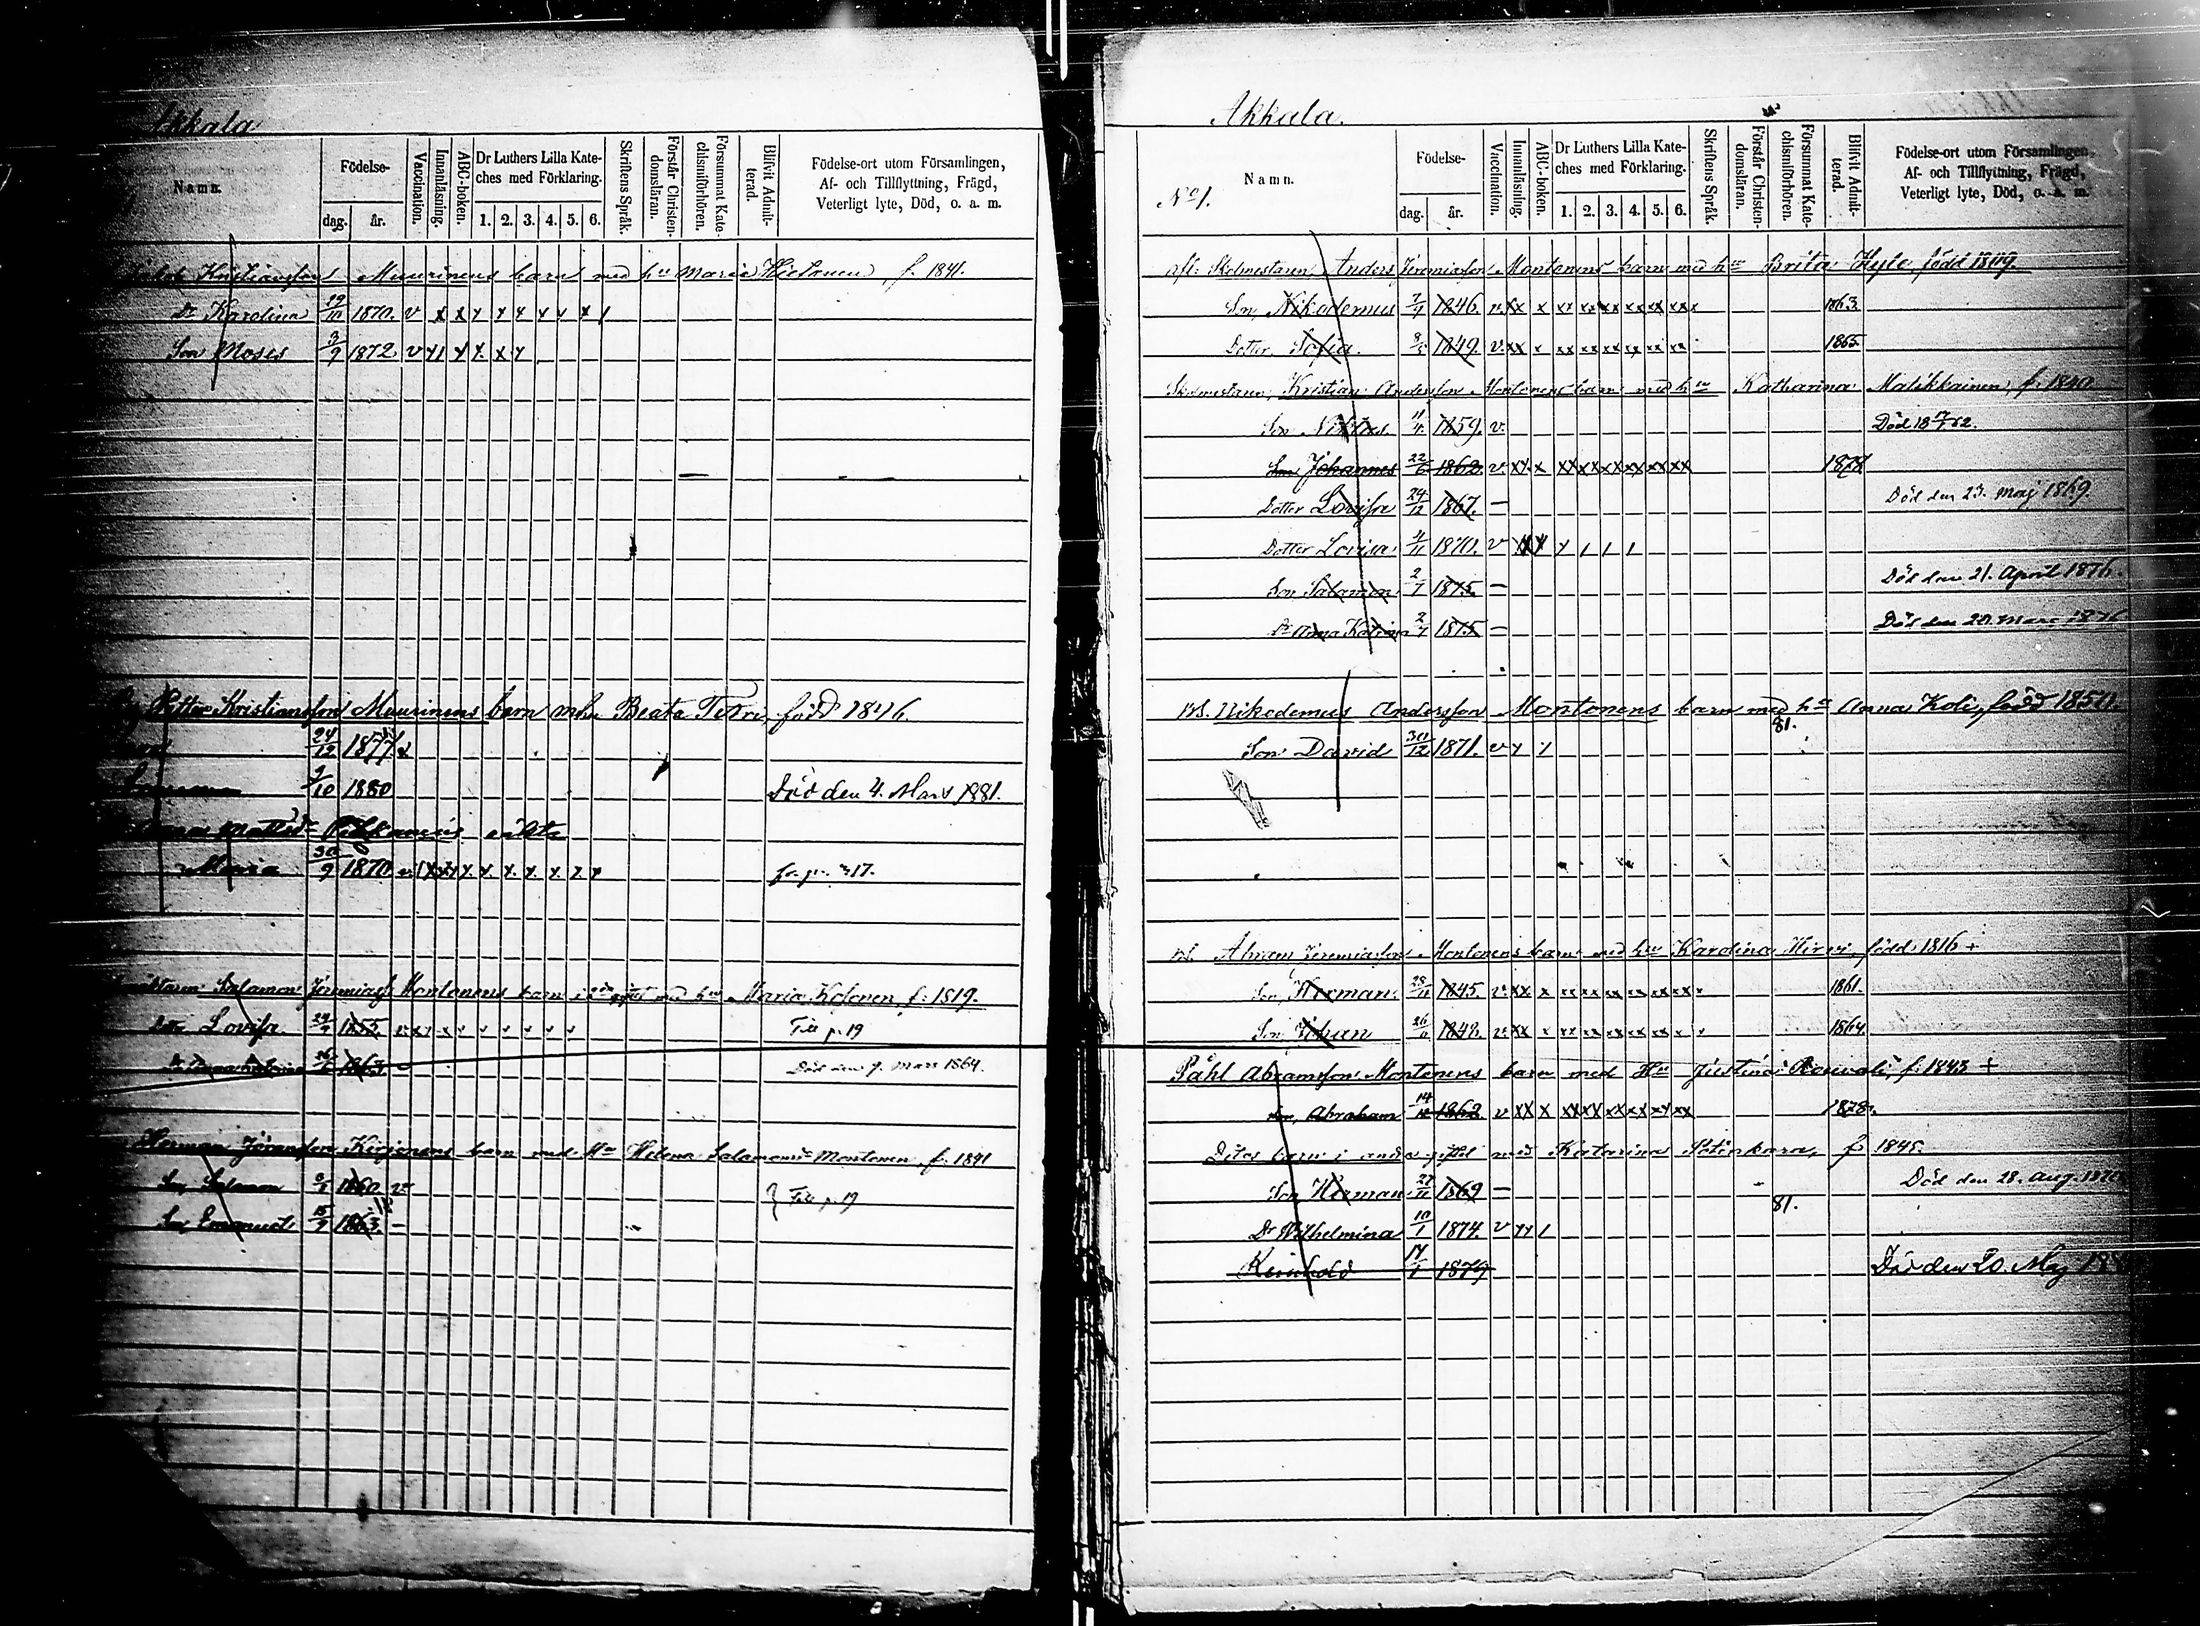 Akkala
Namn.
Födelse-
dag. år.
Vaccination.
Innanläsning.
ABC-boken.
Dr Luthers Lilla Kateches med Förklaring.
1. 2. 3. 4. 5. 6.
Skriftens Språk.
Förstår Christendomsläran.
Försummat Katechismiförhören.
Blifvit Admitterad.
Födelse-ort utom Församlingen,
Af- och Tillflyttning, Frägd,
Veterligt lyte, Död, o. a. m.
Kristiansson Muurinens barn med hu Maria Hietanen f. 1841.
Dr Karolina 29/10 1870. v x x x x x x x x /
Son Moses 3/9 1872 v x 1 x x x x
Petter Kristiansson Muurinens barn mhu Beata Terri, född 1846.
24/12 1877 x
9/10 1880 Död den 4. Mars 1881.
Mattsdr Pekkanens oäkta
Maria 30/9 1870 17.
Salomon Jeremiass Montonens barn i 2dra giftet med hu Maria Kosonen f. 1819.
Dotter Lovisa 1855. Till p. 19
Dr Anna Katrina 1863. Död den 9. Mars 1864.
Herman Göransson Kirjonens barn med Hu Helena Salamonsdr Montonen f. 1841
Son Salamon 1860 v } Till p. 19
Son Emanuel 15/9 1863. -
Akkala.
No 1.
Namn.
Födelse-
dag. år.
Vaccination.
Innanläsning.
ABC-boken.
Dr Luthers Lilla Kateches med Förklaring.
1. 2. 3. 4. 5. 6.
Skriftens Språk.
Förstår Christendomsläran.
Försummat Katechismiförhören.
Blifvit Admitterad.
Födelse-ort utom Församlingen,
Af- och Tillflyttning, Frägd,
Veterligt lyte, Död, o. a. m.
Afl. Skolmestaren Anders Jeremiasson Montonens barn med hu Brita Hyle, född 1809.
Son, Nikodemus 7/9 1846. v. xx x xx xx xx xx xx xx x 1863.
Dotter Sofia. 1849. v. xx x xx xx xx xx xx xx 1865.
Skolmestaren, Kristian Andersson Montonens barn med hu Katharina Malikkainen, f. 1840
Son Niklas. 11/4 1859. v. Död 18 17/1 62.
Son Johannes 22/6 1862 v. xx. x xx xx xx xx xx xx 1878
Dotter Lovisa 24/12 1867. - Död den 23. Maj 1869.
Dotter Lovisa 4/11 1870. v xx x / / / /
Son Salamon 2/7 1875. - Död den 21. April 1876.
Dr Anna Katrina 2/7 1875 - Död den 20. Mars 1876
Nikodemus Andersson Montonens barn med hu Anna Koli, född 1850.
Son David 30/12 1871. v x x 81.
Abram Jeremiasson Montonens barn med hu Karolina Hirvi, född 1816 +
Son, Herman. 1845. v. xx x xx xx xx xx xx xx x 1861.
Son Johan 26/6 1848. v. xx x xx xx xx xx xx x x 1864.
Påhl Abramsson Montonens barn med Hu Justina f. 1843 +
Son, Abraham 14/12 1862. v xx x xx xx xx xx xx xx 1878.
Ditos barn i andra giftet med Katarina f 1845.
Son Herman 27/11 1869 - Död den 28. Aug. 1870
Dr Wilhelmina 10/1 1874. v xx 1 81.
Reinhold 14/1 1879 Död den 20. Maj